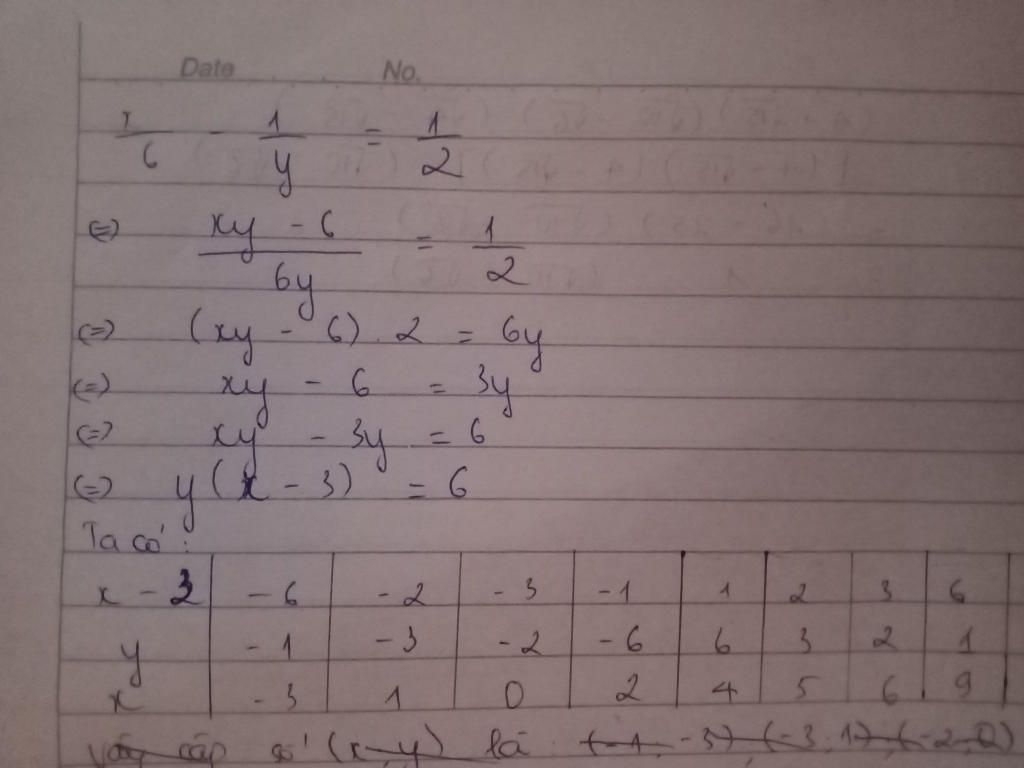 Date No.
x/6 - 1/y = 1/2
(=) (xy - 6)/6y = 1/2
(=) (xy - 6) . 2 = 6y
(=) xy - 6 = 3y
(=) xy - 3y = 6
(=) y(x - 3) = 6
Ta có :
x - 3 -6 -2 -3 -1 1 2 3 6
y -1 -3 -2 -6 6 3 2 1
x -3 1 0 2 4 5 6 9
Vậy cặp số (x, y) là (-1, -3), (-3, 1), (-2, 0)